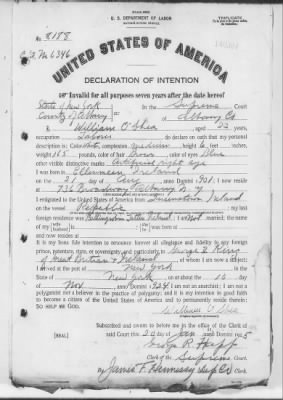 U. S. DEPARTMENT OF LABOR
TRIPLICATE
No. 8188
UNITED STATES OF AMERICA
DECLARATION OF INTENTION
Invalid for all purposes seven years after the date hereof
State of New York
In the Supreme Court
County of Albany
of Albany Co
I, William O'Shea, aged
occupation Labor, do declare on oath that my personal
description is: Color White, complexion medium, height 6 feet
weight 165 pounds, color of hair Brown, color of eyes Blue
other visible distinctive marks Artificial Right eye
I was born in Ireland
on the day of, anno Domini; I now reside at
Broadway Albany N. Y.
I emigrated to the United States of America from Ireland
on the vessel; my last
foreign residence was; I am not married; the name of my
It is my bona fide intention to renounce forever all allegiance and fidelity to any foreign
prince, potentate, state, or sovereignty, and particularly to George V King
of Great Britain & Ireland, of whom I am now a subject;
I arrived at the port of New York, in the
State of New York, on or about the 10 day
of Nov, anno Domini 1924; I am not an anarchist; I am not a
polygamist nor a believer in the practice of polygamy; and it is my intention in good faith
to become a citizen of the United States of America and to permanently reside therein:
SO HELP ME GOD.
William O'Shea
Subscribed and sworn to before me in the office of the Clerk of
[SEAL]
said Court this 20 day of Jan, anno Domini
Clerk of the Supreme Court.
By James F. Hennessy Clerk.